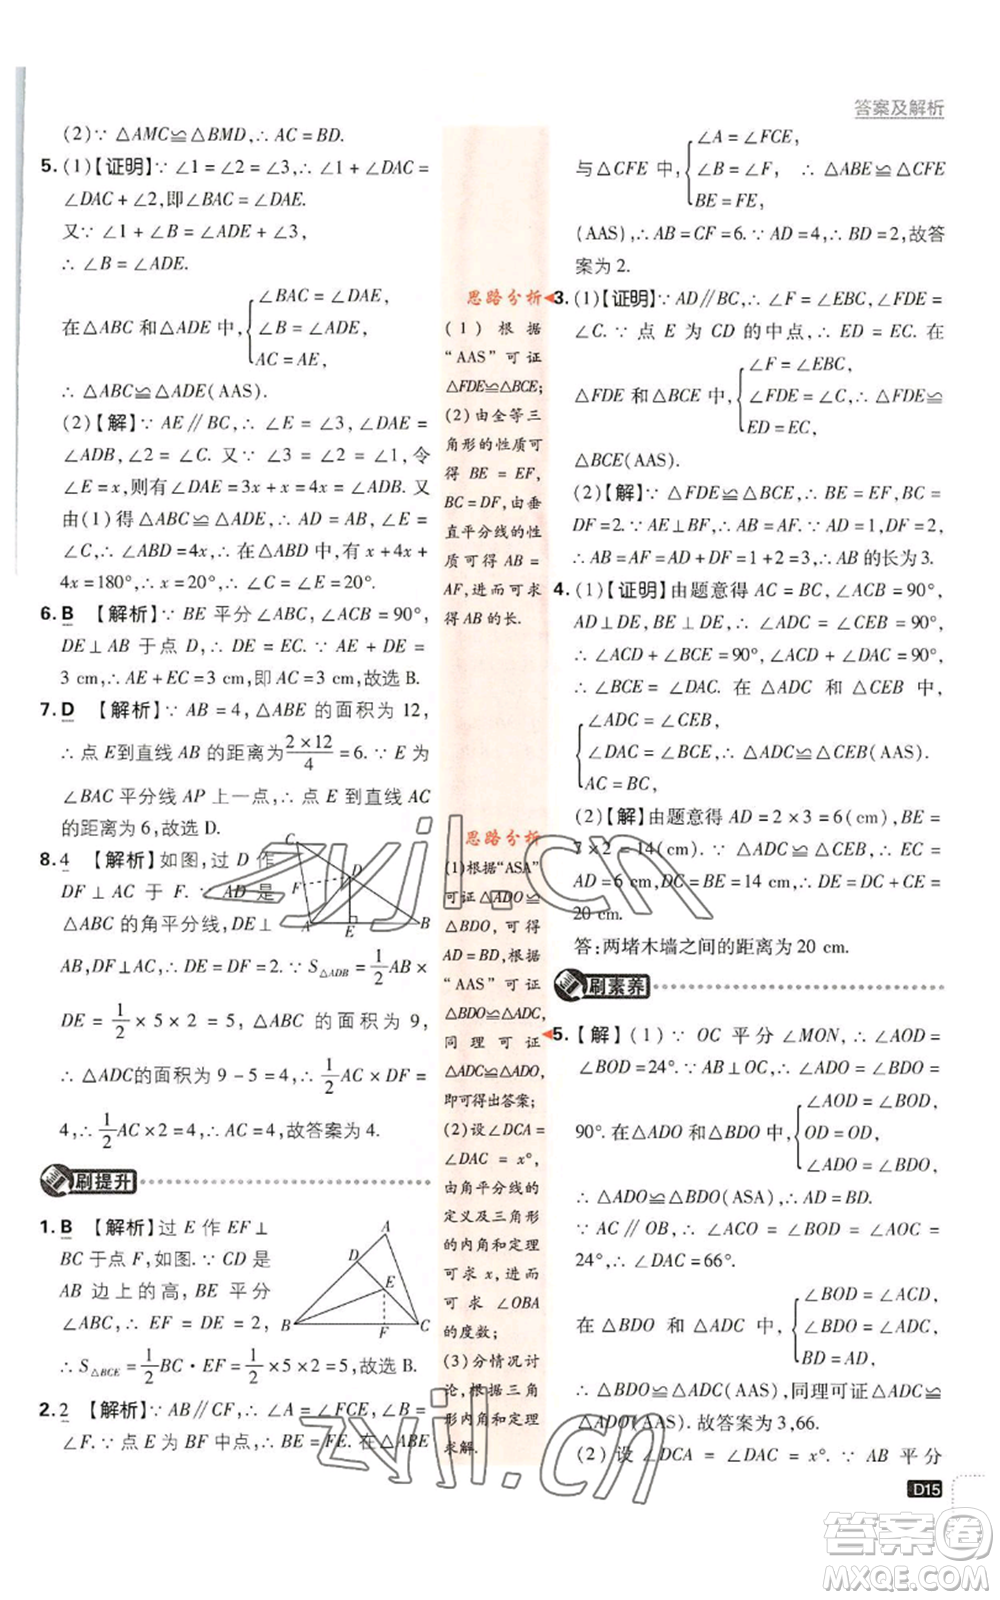 答案及解析
(2)∵ △AMC≌△BMD,∴ AC=BD.
5.(1)【证明】∵ ∠1=∠2=∠3,∴ ∠1+∠DAC=
∠DAC+∠2,即∠BAC=∠DAE.
又∵∠1+∠B=∠ADE+∠3,
∴ ∠B=∠ADE.
∠BAC=∠DAE,
在△ABC 和△ADE 中,{∠B=∠ADE,
AC=AE,
∴ △ABC≌△ADE(AAS).
(2)【解】∵ AE∥BC,∴ ∠E=∠3,∠DAE=
∠ADB,∠2=∠C. 又∵ ∠3=∠2=∠1,令
∠E=x,则有∠DAE=3x+x=4x=∠ADB. 又
由(1)得△ABC≌△ADE,∴ AD=AB,∠E=
∠C,∴ ∠ABD=4x,∴ 在△ABD中,有x+4x+
4x=180°,∴ x=20°,∴ ∠C=∠E=20°.
6.B 【解析】∵ BE 平分∠ABC,∠ACB=90°,
DE⊥AB 于点 D,∴ DE=EC. ∵ AE+DE=
3 cm,∴ AE+EC=3 cm,即 AC=3 cm,故选 B.
7.D 【解析】∵ AB=4,△ABE 的面积为 12,
∴点 E到直线 AB 的距离为2×12/4=6. ∵ E 为
∠BAC 平分线 AP 上一点,∴ 点 E 到直线 AC
的距离为6,故选 D.
8.4 【解析】如图,过 D 作
DF⊥AC 于 F. ∵ AD 是
△ABC 的角平分线,DE⊥
AB,∴ DE=DF=2. ∵ S△ADB=1/2AB×
DE=1/2×5×2=5,△ABC 的面积为 9,
∴ △ADC的面积为 9-5=4,∴ 1/2AC×DF=
4,∴ 1/2AC×2=4,∴ AC=4,故答案为 4.
C
F
D
A
E
B
刷提升
1.B 【解析】过 E 作 EF⊥
BC 于点 F,如图. ∵ CD 是
AB 边上的高,BE 平分
∠ABC,∴ EF=DE=2,
∴ S△BCE=1/2BC·EF=1/2×5×2=5,故选 B.
A
D
E
B
F
C
2.2 【解析】∵ AB∥CF,∴ ∠A=∠FCE,∠B=
∠F. ∵ 点 E 为 BF 中点,∴ BE=FE. 在△ABE
思路分析
(1) 根据
“AAS”可证
△FDE≌△BCE;
(2)由全等三
角形的性质可
得 BE=EF,
BC=DF,由垂
直平分线的性
质可得 AB=
AF,进而可求
得 AB 的长.
思路分析
(1)根据“ASA”
可证△ADO≌
△BDO,可得
AD=BD,根据
“AAS”可证
△BDO≌△ADC,
同理可证
△ADC≌△ADO,
即可得出答案;
(2)设∠DCA=
∠DAC=x°,
由角平分线的
定义及三角形
的内角和定理
可求 x,进而
可求∠OBA
的度数;
(3)分情况讨
论,根据三角
形内角和定理
求解.
∠A=∠FCE,
与△CFE 中,{∠B=∠F, ∴ △ABE≌△CFE
BE=FE,
(AAS),∴ AB=CF=6. ∵ AD=4,∴ BD=2,故答
案为 2.
3.(1)【证明】∵ AD∥BC,∴ ∠F=∠EBC,∠FDE=
∠C. ∵ 点 E 为 CD 的中点,∴ ED=EC. 在
∠F=∠EBC,
△FDE 和△BCE 中,{∠FDE=∠C,∴ △FDE≌
ED=EC,
△BCE(AAS).
(2)【解】∵ △FDE≌△BCE,∴ BE=EF,BC=
DF=2. ∵AE⊥BF,∴AB=AF. ∵ AD=1,DF=2,
∴ AB=AF=AD+DF=1+2=3,∴ AB 的长为 3.
4.(1)【证明】由题意得 AC=BC,∠ACB=90°,
AD⊥DE,BE⊥DE,∴ ∠ADC=∠CEB=90°,
∴ ∠ACD+∠BCE=90°,∠ACD+∠DAC=90°,
∴ ∠BCE=∠DAC. 在△ADC 和△CEB 中,
∠ADC=∠CEB,
{∠DAC=∠BCE,∴ △ADC≌△CEB(AAS).
AC=BC,
(2)【解】由题意得 AD=2×3=6(cm),BE=
7×2=14(cm). ∵ △ADC≌△CEB,∴ EC=
AD=6 cm,DC=BE=14 cm,∴ DE=DC+CE=
20 cm.
答:两堵木墙之间的距离为 20 cm.
刷素养
5.【解】(1)∵ OC 平分∠MON,∴ ∠AOD=
∠BOD=24°. ∵ AB⊥OC,∴ ∠ADO=∠BDO=
∠AOD=∠BOD,
90°. 在△ADO 和△BDO 中,{OD=OD,
∠ADO=∠BDO,
∴ △ADO≌△BDO(ASA),∴ AD=BD.
∵ AC∥OB,∴ ∠ACO=∠BOD=∠AOC=
24°,∴ ∠DAC=66°.
∠BOD=∠ACD,
在△BDO 和△ADC 中,{∠BDO=∠ADC,
BD=AD,
∴ △BDO≌△ADC(AAS),同理可证△ADC≌
△ADO(AAS). 故答案为3,66.
(2) 设∠DCA=∠DAC=x°. ∵ AB 平分
D15
zyjl.cn
zyjl.cn
答案圈
MXQE.COM